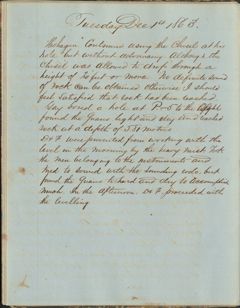 Tuesday Dec 1st 1863.
"Chesapin" Continued using the Chisel at his
hole but without advancing. Although the
Chisel was allowed to drop through a
height of 20 feet or more. No definite sound
of rock can be obtained otherwise I should
feel satisfied that rock has been reached
Gay bored a hole at P-5 to the Right
found the Guano light and dry and reached
rock at a depth of 5.31 metres
Do F. were prevented from working with the
level in the morning by the heavy mist. Took
the men belonging to the instruments and
tried to sound with the sounding rods, but
found the Guano too hard and dry to accomplish
much. In the afternoon Do F. proceeded with
the levelling